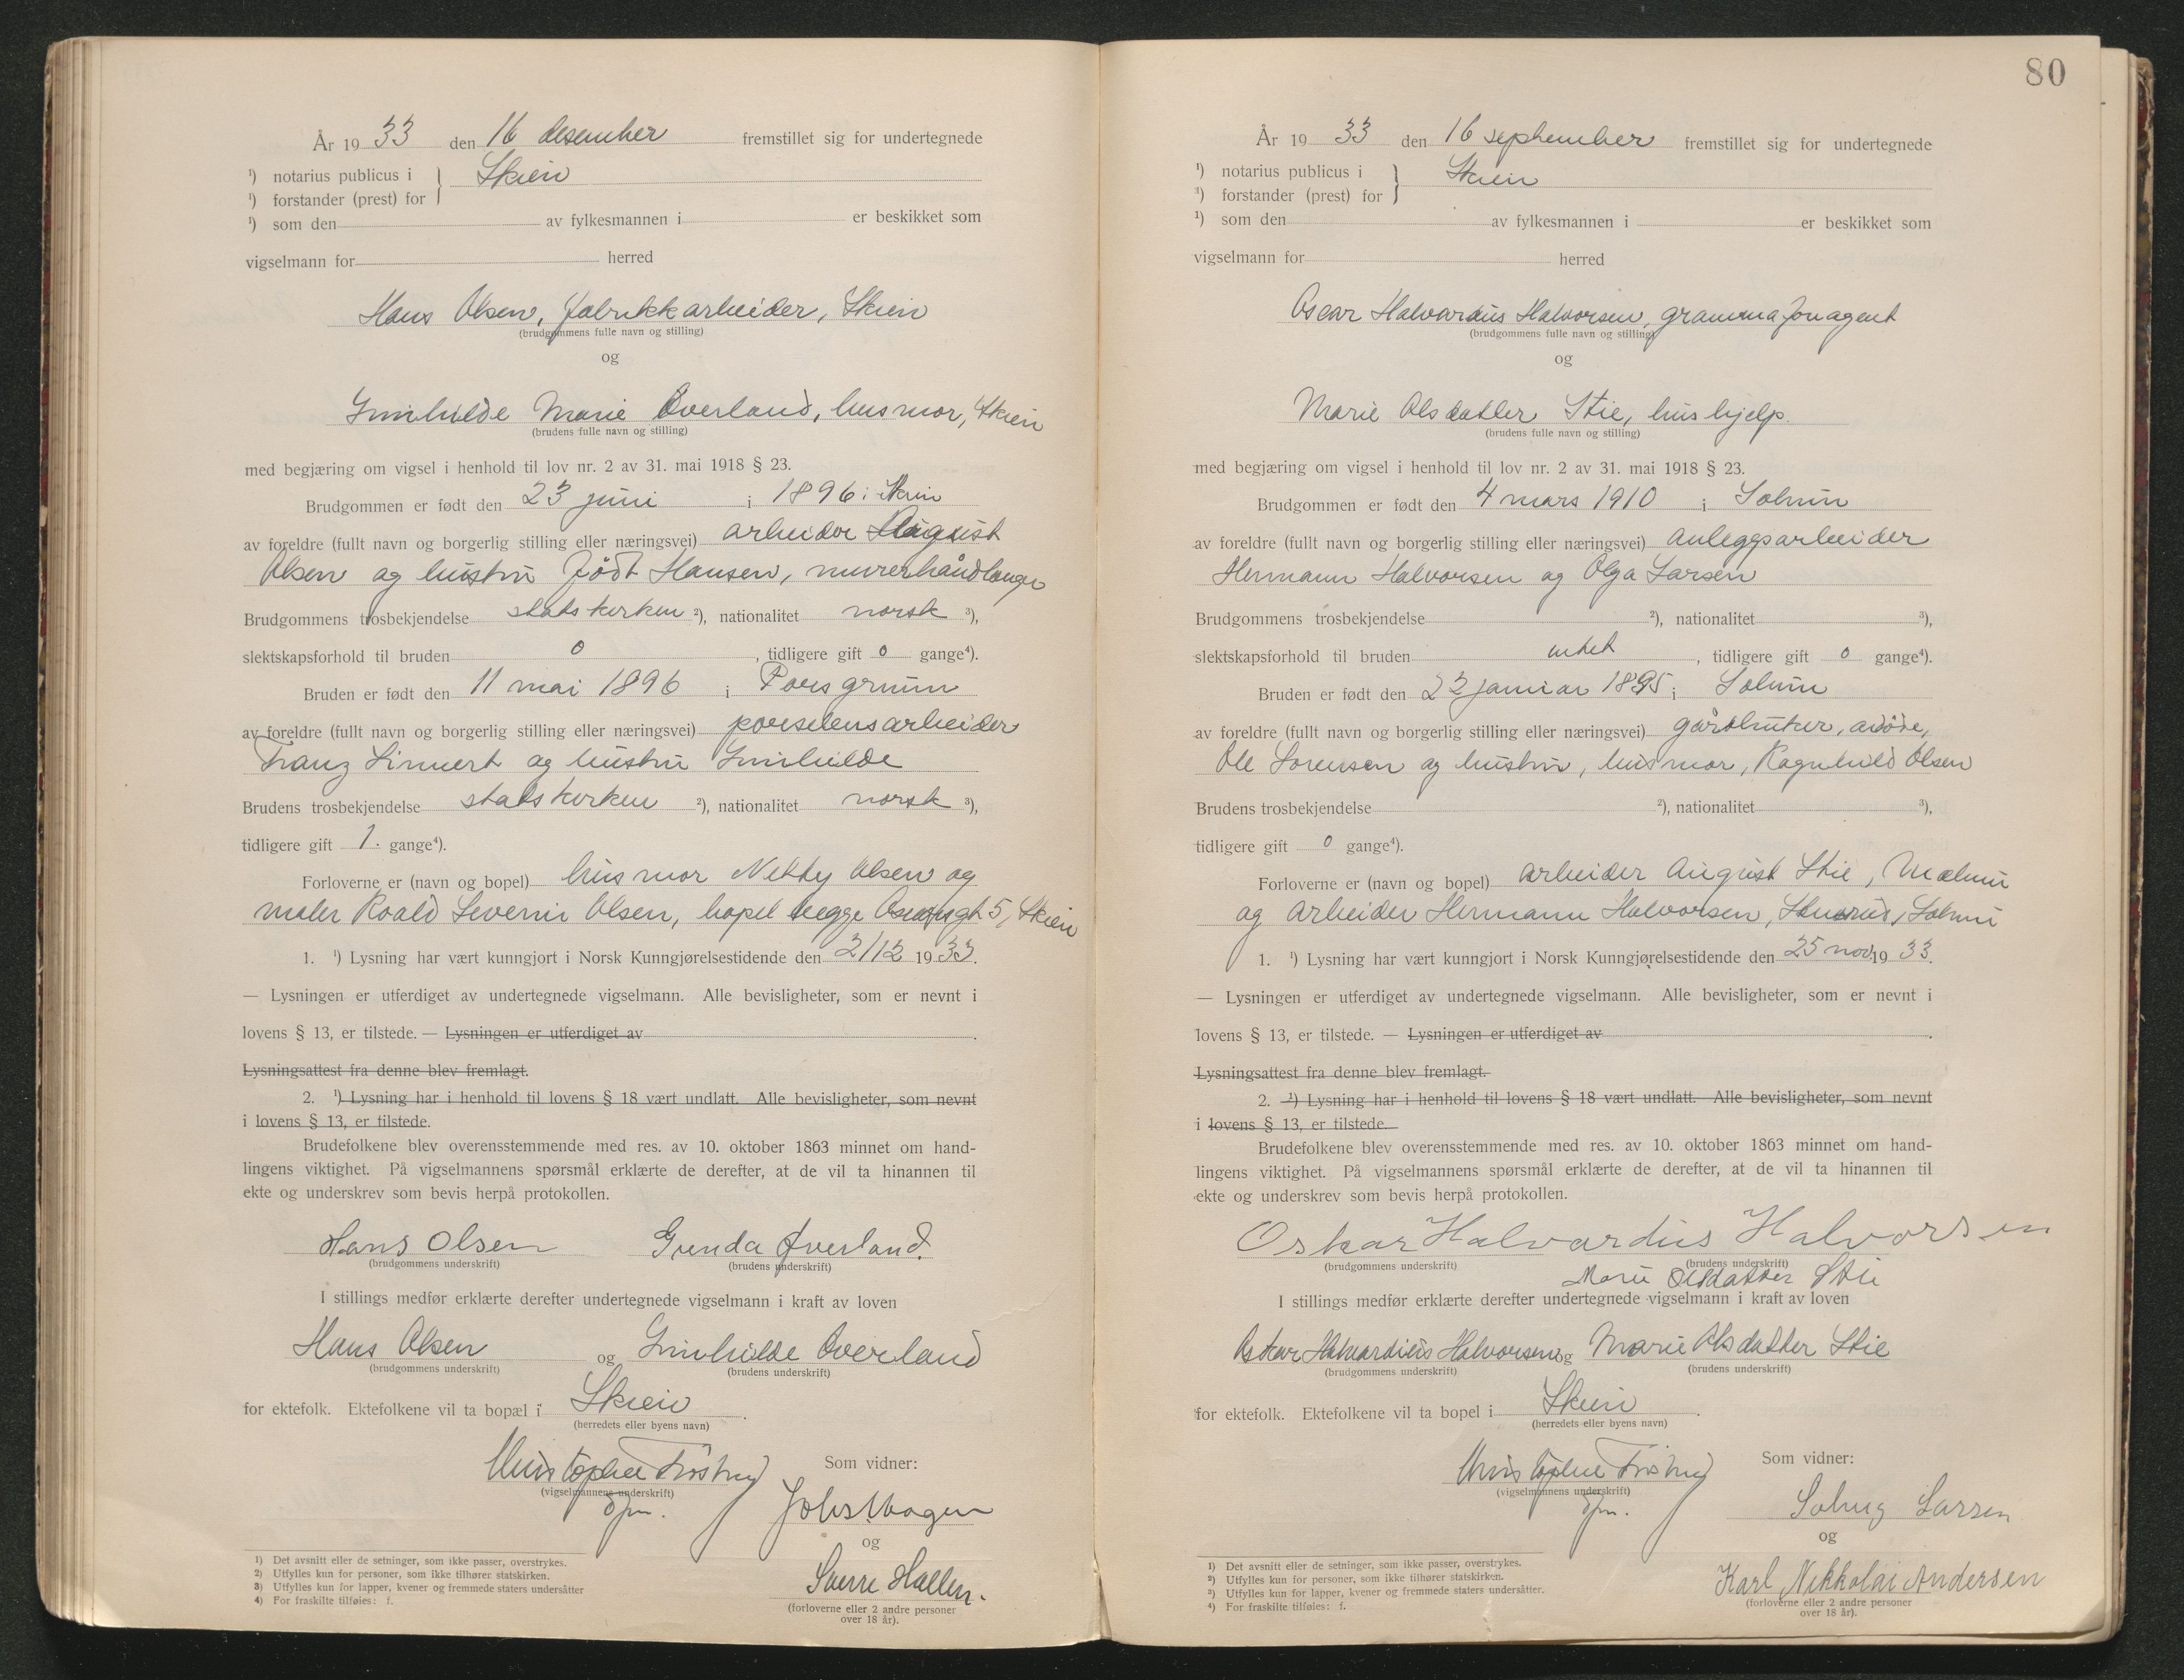 År 1933 den 16 desember fremstillet sig for undertegnede
¹) notarius publicus i } Skien
¹) forstander (prest) for
¹) som den av fylkesmannen i er beskikket som
vigselmann for herred
Hans Olsen, fabrikkarbeider, Skien
(brudgommens fulle navn og stilling)
og
Gunhilde Marie Överland, husmor, Skien
(brudens fulle navn og stilling)
med begjæring om vigsel i henhold til lov nr. 2 av 31. mai 1918 § 23.
Brudgommen er født den 23 juni i 1896 i Skien
av foreldre (fullt navn og borgerlig stilling eller næringsvei) arbeider August
Olsen og hustru født Hansen, murerhåndlanger
Brudgommens trosbekjendelse statskirken ²), nationalitet norsk ³),
slektskapsforhold til bruden 0, tidligere gift 0 gange⁴).
Bruden er født den 11 mai 1896 i Porsgrunn
av foreldre (fullt navn og borgerlig stilling eller næringsvei) porselensarbeider
Franz Linnert og hustru Gunhilde
Brudens trosbekjendelse statskirken ²), nationalitet norsk ³),
tidligere gift 1. gange⁴).
Forloverne er (navn og bopel) husmor Nekky Olsen og
maler Roald Severin Olsen, bopel begge 5, Skien
1. ¹) Lysning har vært kunngjort i Norsk Kunngjørelsestidende den 2/12 1933.
— Lysningen er utferdiget av undertegnede vigselmann. Alle bevisligheter, som er nevnt i
lovens § 13, er tilstede. — Lysningen er utferdiget av .
Lysningsattest fra denne blev fremlagt.
2. ¹) Lysning har i henhold til lovens § 18 vært undlatt. Alle bevisligheter, som nevnt
i lovens § 13, er tilstede.
Brudefolkene blev overensstemmende med res. av 10. oktober 1863 minnet om hand-
lingens viktighet. På vigselmannens spørsmål erklærte de derefter, at de vil ta hinannen til
ekte og underskrev som bevis herpå protokollen.
Hans Olsen Gunda Øverland.
(brudgommens underskrift) (brudens underskrift)
I stillings medfør erklærte derefter undertegnede vigselmann i kraft av loven
Hans Olsen og Gunhilde Överland
(brudgommens underskrift) (brudens underskrift)
for ektefolk. Ektefolkene vil ta bopæl i Skien.
(herredets eller byens navn)
Som vidner:
(vigselmannens underskrift)
Johs. Wagen
og
Sverre Hallen.
(forloverne eller 2 andre personer
over 18 år).
¹) Det avsnitt eller de setninger, som ikke passer, overstrykes.
²) Utfylles kun for personer, som ikke tilhører statskirken.
³) Utfylles kun for lapper, kvener og fremmede staters undersåtter
⁴) For fraskilte tilføies: f.
80
År 1933 den 16 september fremstillet sig for undertegnede
¹) notarius publicus i } Skien
¹) forstander (prest) for
¹) som den av fylkesmannen i er beskikket som
vigselmann for herred
Oscar Halvardius Halvorsen, grammafonagent
(brudgommens fulle navn og stilling)
og
Marie Olsdatter Stie, hushjelp.
(brudens fulle navn og stilling)
med begjæring om vigsel i henhold til lov nr. 2 av 31. mai 1918 § 23.
Brudgommen er født den 4 mars 1910 i Solum
av foreldre (fullt navn og borgerlig stilling eller næringsvei) anleggsarbeider
Hermann Halvorsen og Olga Larsen
Brudgommens trosbekjendelse ²), nationalitet ³),
slektskapsforhold til bruden intet, tidligere gift 0 gange⁴).
Bruden er født den 22 januar 1895 i Solum
av foreldre (fullt navn og borgerlig stilling eller næringsvei) gårdbruker, avdöde,
Ole Sorensen og hustru, husmor, Ragnhild Olsen
Brudens trosbekjendelse ²), nationalitet ³),
tidligere gift 0 gange⁴).
Forloverne er (navn og bopel) arbeider August Stie, Mælum
og arbeider Hermann Halvorsen, Solum
1. ¹) Lysning har vært kunngjort i Norsk Kunngjørelsestidende den 25 nov 1933.
— Lysningen er utferdiget av undertegnede vigselmann. Alle bevisligheter, som er nevnt i
lovens § 13, er tilstede. — Lysningen er utferdiget av .
Lysningsattest fra denne blev fremlagt.
2. ¹) Lysning har i henhold til lovens § 18 vært undlatt. Alle bevisligheter, som nevnt
i lovens § 13, er tilstede.
Brudefolkene blev overensstemmende med res. av 10. oktober 1863 minnet om hand-
lingens viktighet. På vigselmannens spørsmål erklærte de derefter, at de vil ta hinannen til
ekte og underskrev som bevis herpå protokollen.
Oskar Halvardius Halvorsen
(brudgommens underskrift) (brudens underskrift)
Marie Olsdatter Stie
I stillings medfør erklærte derefter undertegnede vigselmann i kraft av loven
Oskar Halvardius Halvorsen og Marie Olsdatter Stie
(brudgommens underskrift) (brudens underskrift)
for ektefolk. Ektefolkene vil ta bopel i Skien.
(herredets eller byens navn)
Som vidner:
(vigselmannens underskrift)
Solveig Larsen
og
Karl Nikkolai Andersen
(forloverne eller 2 andre personer
over 18 år).
¹) Det avsnitt eller de setninger, som ikke passer, overstrykes.
²) Utfylles kun for personer, som ikke tilhører statskirken.
³) Utfylles kun for lapper, kvener og fremmede staters undersåtter.
⁴) For fraskilte tilføies: f.